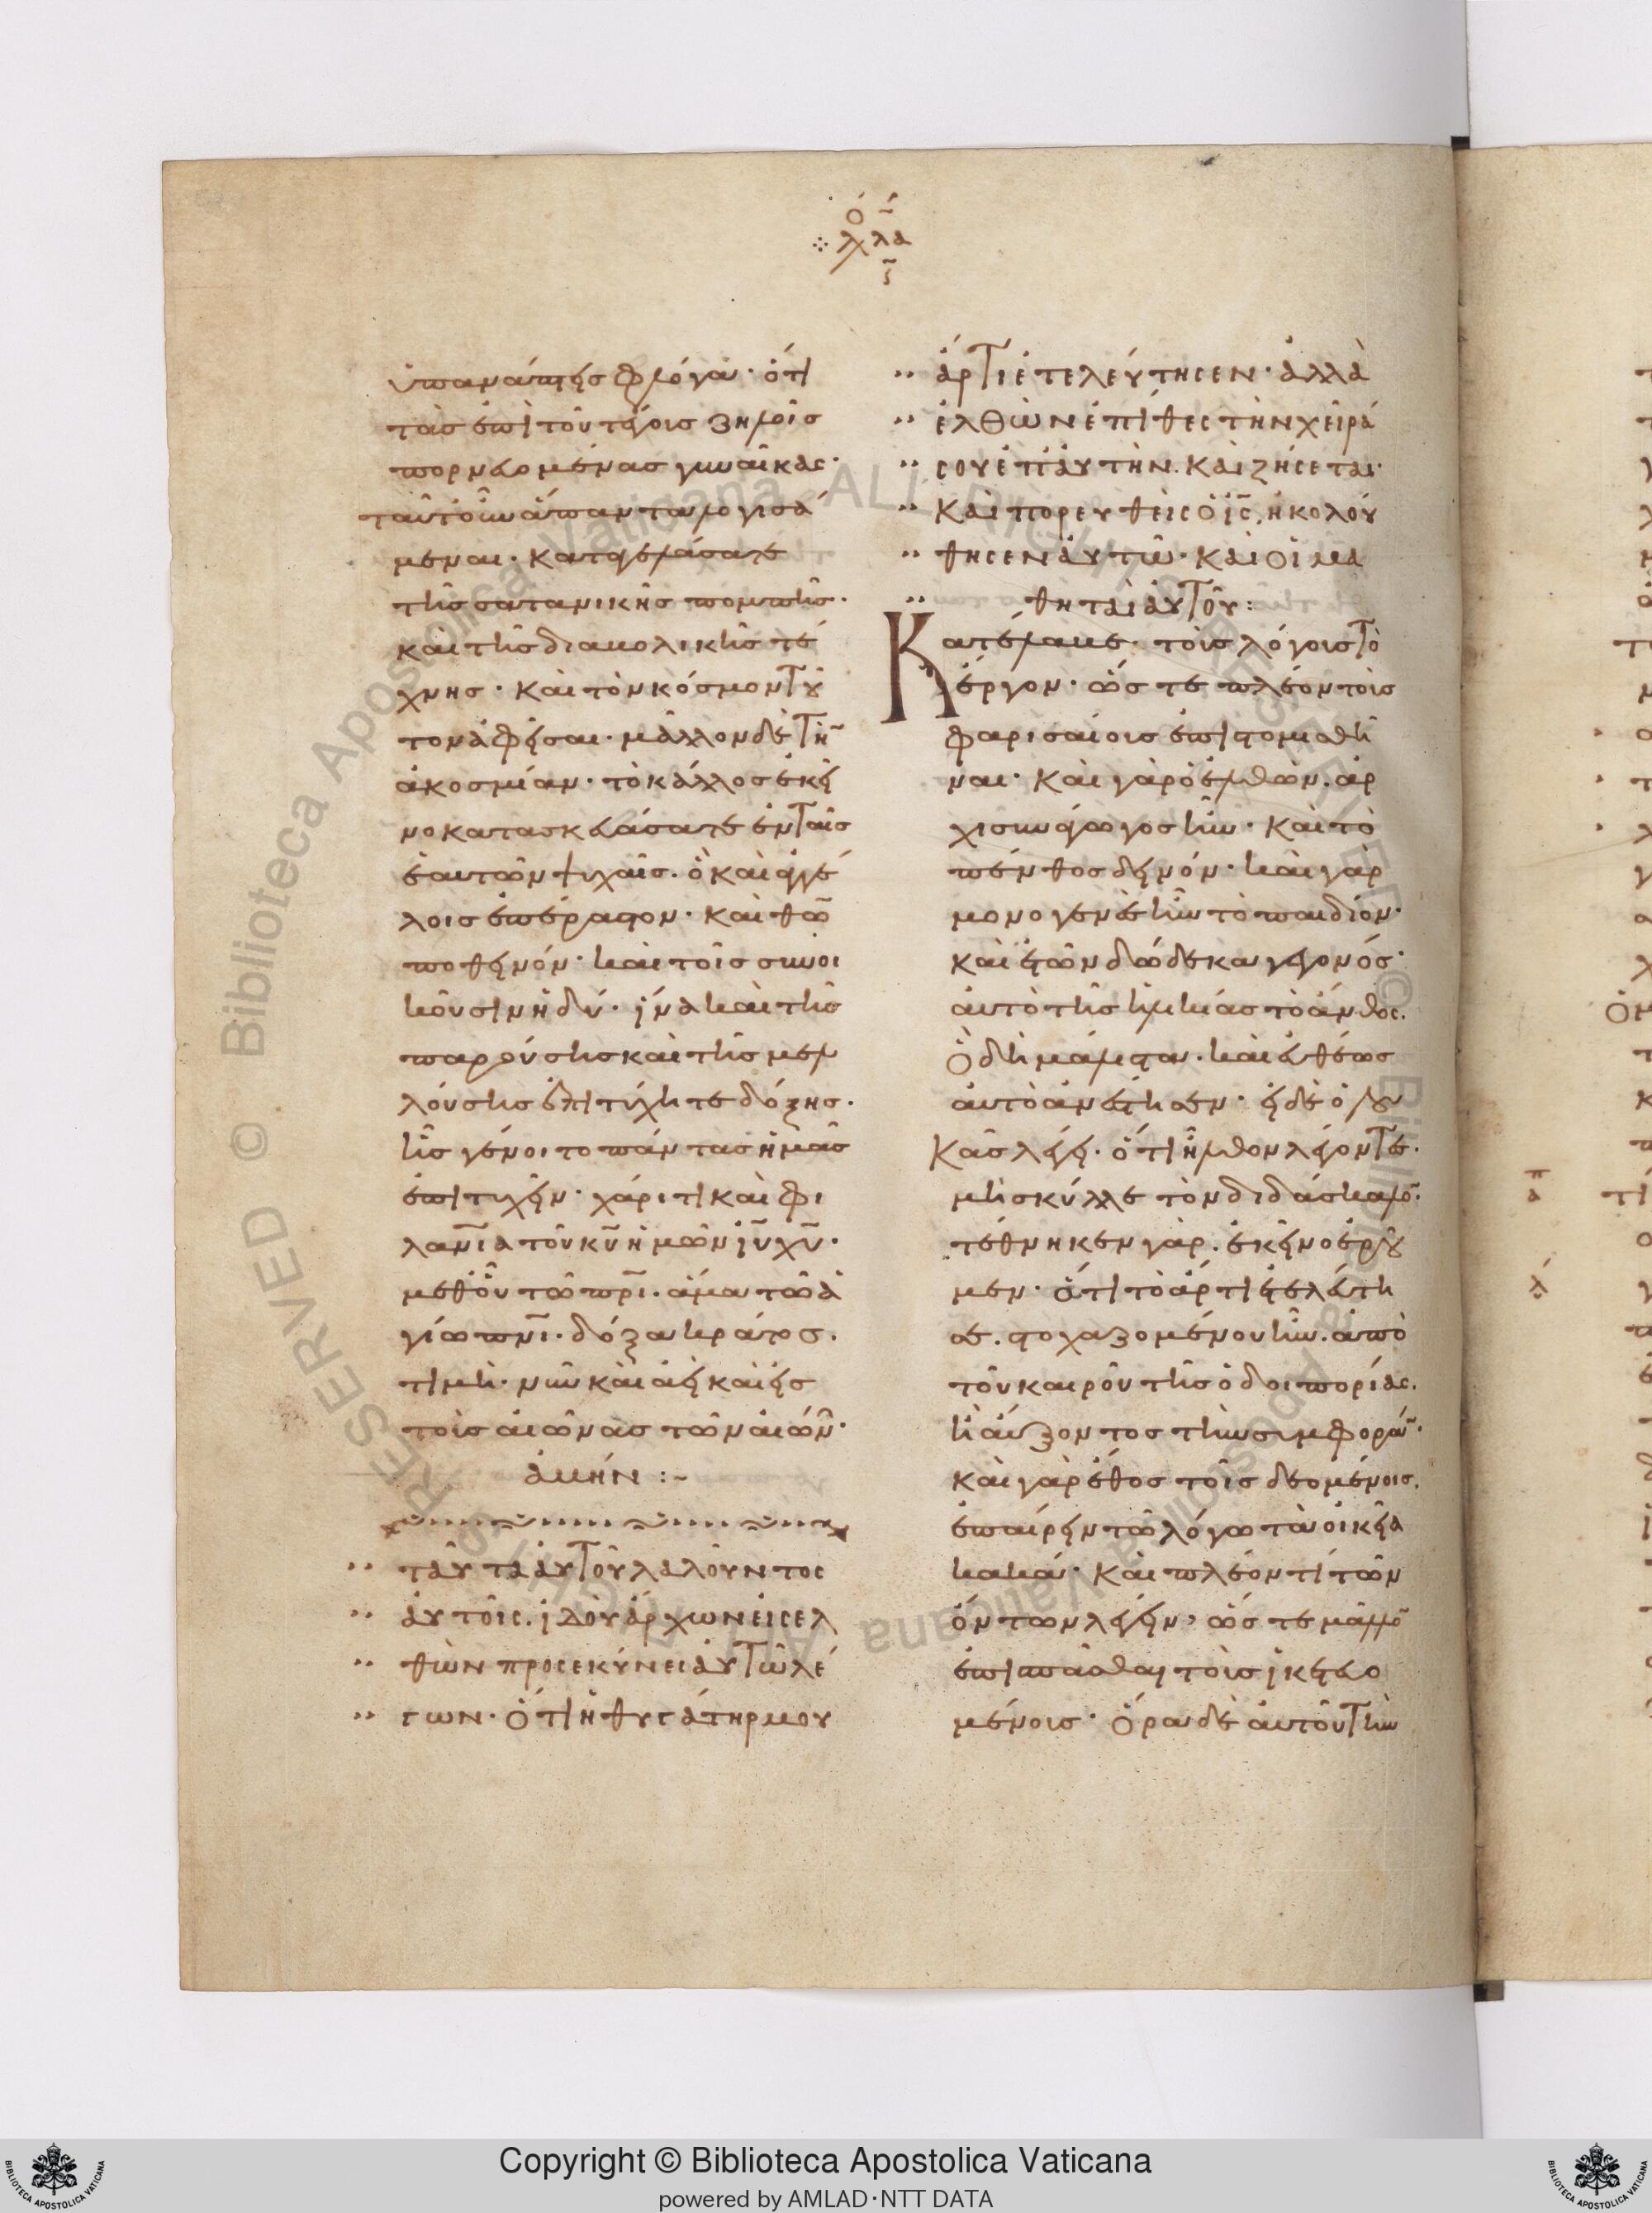 ὁ λόγος λα
ὑπανάπτεις φλόγα· ὅτι
τὰς ἐπὶ τοῦ τέγους ζηλοῖς
πορνευομένας γυναῖκας·
ταῦτ' οὖν ἅπαντα λογισά
μεναι· καταγελάσατε
τῆς σατανικῆς πομπῆς·
καὶ τῆς διαβολικῆς τέ
χνης· καὶ τὸν κόσμον τοῦ
τον ἀφεῖσαι· μᾶλλον δὲ τὴν
ἀκοσμίαν· τὸ κάλλος ἐκεῖ
νο κατασκευάσατε ἐν ταῖς
ἑαυτῶν ψυχαῖς· ὃ καὶ ἀγγέ
λοις ἐπέραστον· καὶ θεῷ
ποθεινόν· καὶ τοῖς συνοι
κοῦσιν ἡδύ· ἵνα καὶ τῆς
παρούσης καὶ τῆς μελ
λούσης ἐπιτύχητε δόξης·
ἧς γένοιτο πάντας ἡμᾶς
ἐπιτυχεῖν· χάριτι καὶ φι
λανίᾳ τοῦ κυ ἡμῶν ιυ χυ·
μεθ' οὗ τῷ πρι· ἅμα τῷ ἁ
γίῳ πνι· δόξα κράτος·
τιμὴ· νῦν καὶ ἀεὶ καὶ εἰς
τοὺς αἰῶνας τῶν αἰώνων·
ἀμήν :~
ταῦτα αὐτοῦ λαλοῦντος
αὐτοῖς· ἰδοὺ ἄρχων εἰσελ
θὼν προσεκύνει αὐτῷ λέ
γων· ὅτι ἡ θυγάτηρ μου
ἄρτι ἐτελεύτησεν· ἀλλὰ
ἐλθὼν ἐπίθες τὴν χεῖρά
σου ἐπ' αὐτὴν· καὶ ζήσεται·
καὶ πορευθεὶς ὁ ις, ἠκολού
θησεν αὐτῷ· καὶ οἱ μα
θηταὶ αὐτοῦ:
Κατέλαβε· τοὺς λόγους τὸ
ἔργον· ὥστε πλέον τοὺς
φαρισαίους ἐπιστομισθῆ
ναι· καὶ γὰρ ὁ ἐλθὼν· ἀρ
χισυνάγωγος ἦν· καὶ τὸ
πένθος δεινόν· καὶ γὰρ
μονογενὲς ἦν τὸ παιδίον·
καὶ ἐτῶν δώδεκα γεγονός·
αὐτὸ τῆς ἡλικίας τὸ ἄνθος.
Ὃ δὴ μάλιστα· καὶ εὐθέως
αὐτὸ ἀνέστησεν· εἰ δὲ ὁ λου
κᾶς λέγει· ὅτι ἦλθον λέγοντες·
μὴ σκύλλε τὸν διδάσκαλον·
τέθνηκεν γάρ· ἐκεῖνο ἐροῦ
μεν· ὅτι τὸ ἄρτι ἐτελεύτη
σε· στοχαζομένου ἦν· ἀπὸ
τοῦ καιροῦ τῆς ὁδοιπορίας·
ἢ αὔξοντος τὴν συμφοράν·
καὶ γὰρ ἔθος τοῖς δεομένοις·
ἐπαίρειν τῷ λόγῳ τὰ οἰκεῖα
κακά· καὶ πλέον τι τῶν
ὄντων λέγειν, ὥστε μᾶλλον
ἐπισπᾶσθαι τοὺς ἱκετευο
μένους· Ὅρα δὲ αὐτοῦ τὴν
Copyright © Biblioteca Apostolica Vaticana
powered by AMLAD·NTT DATA